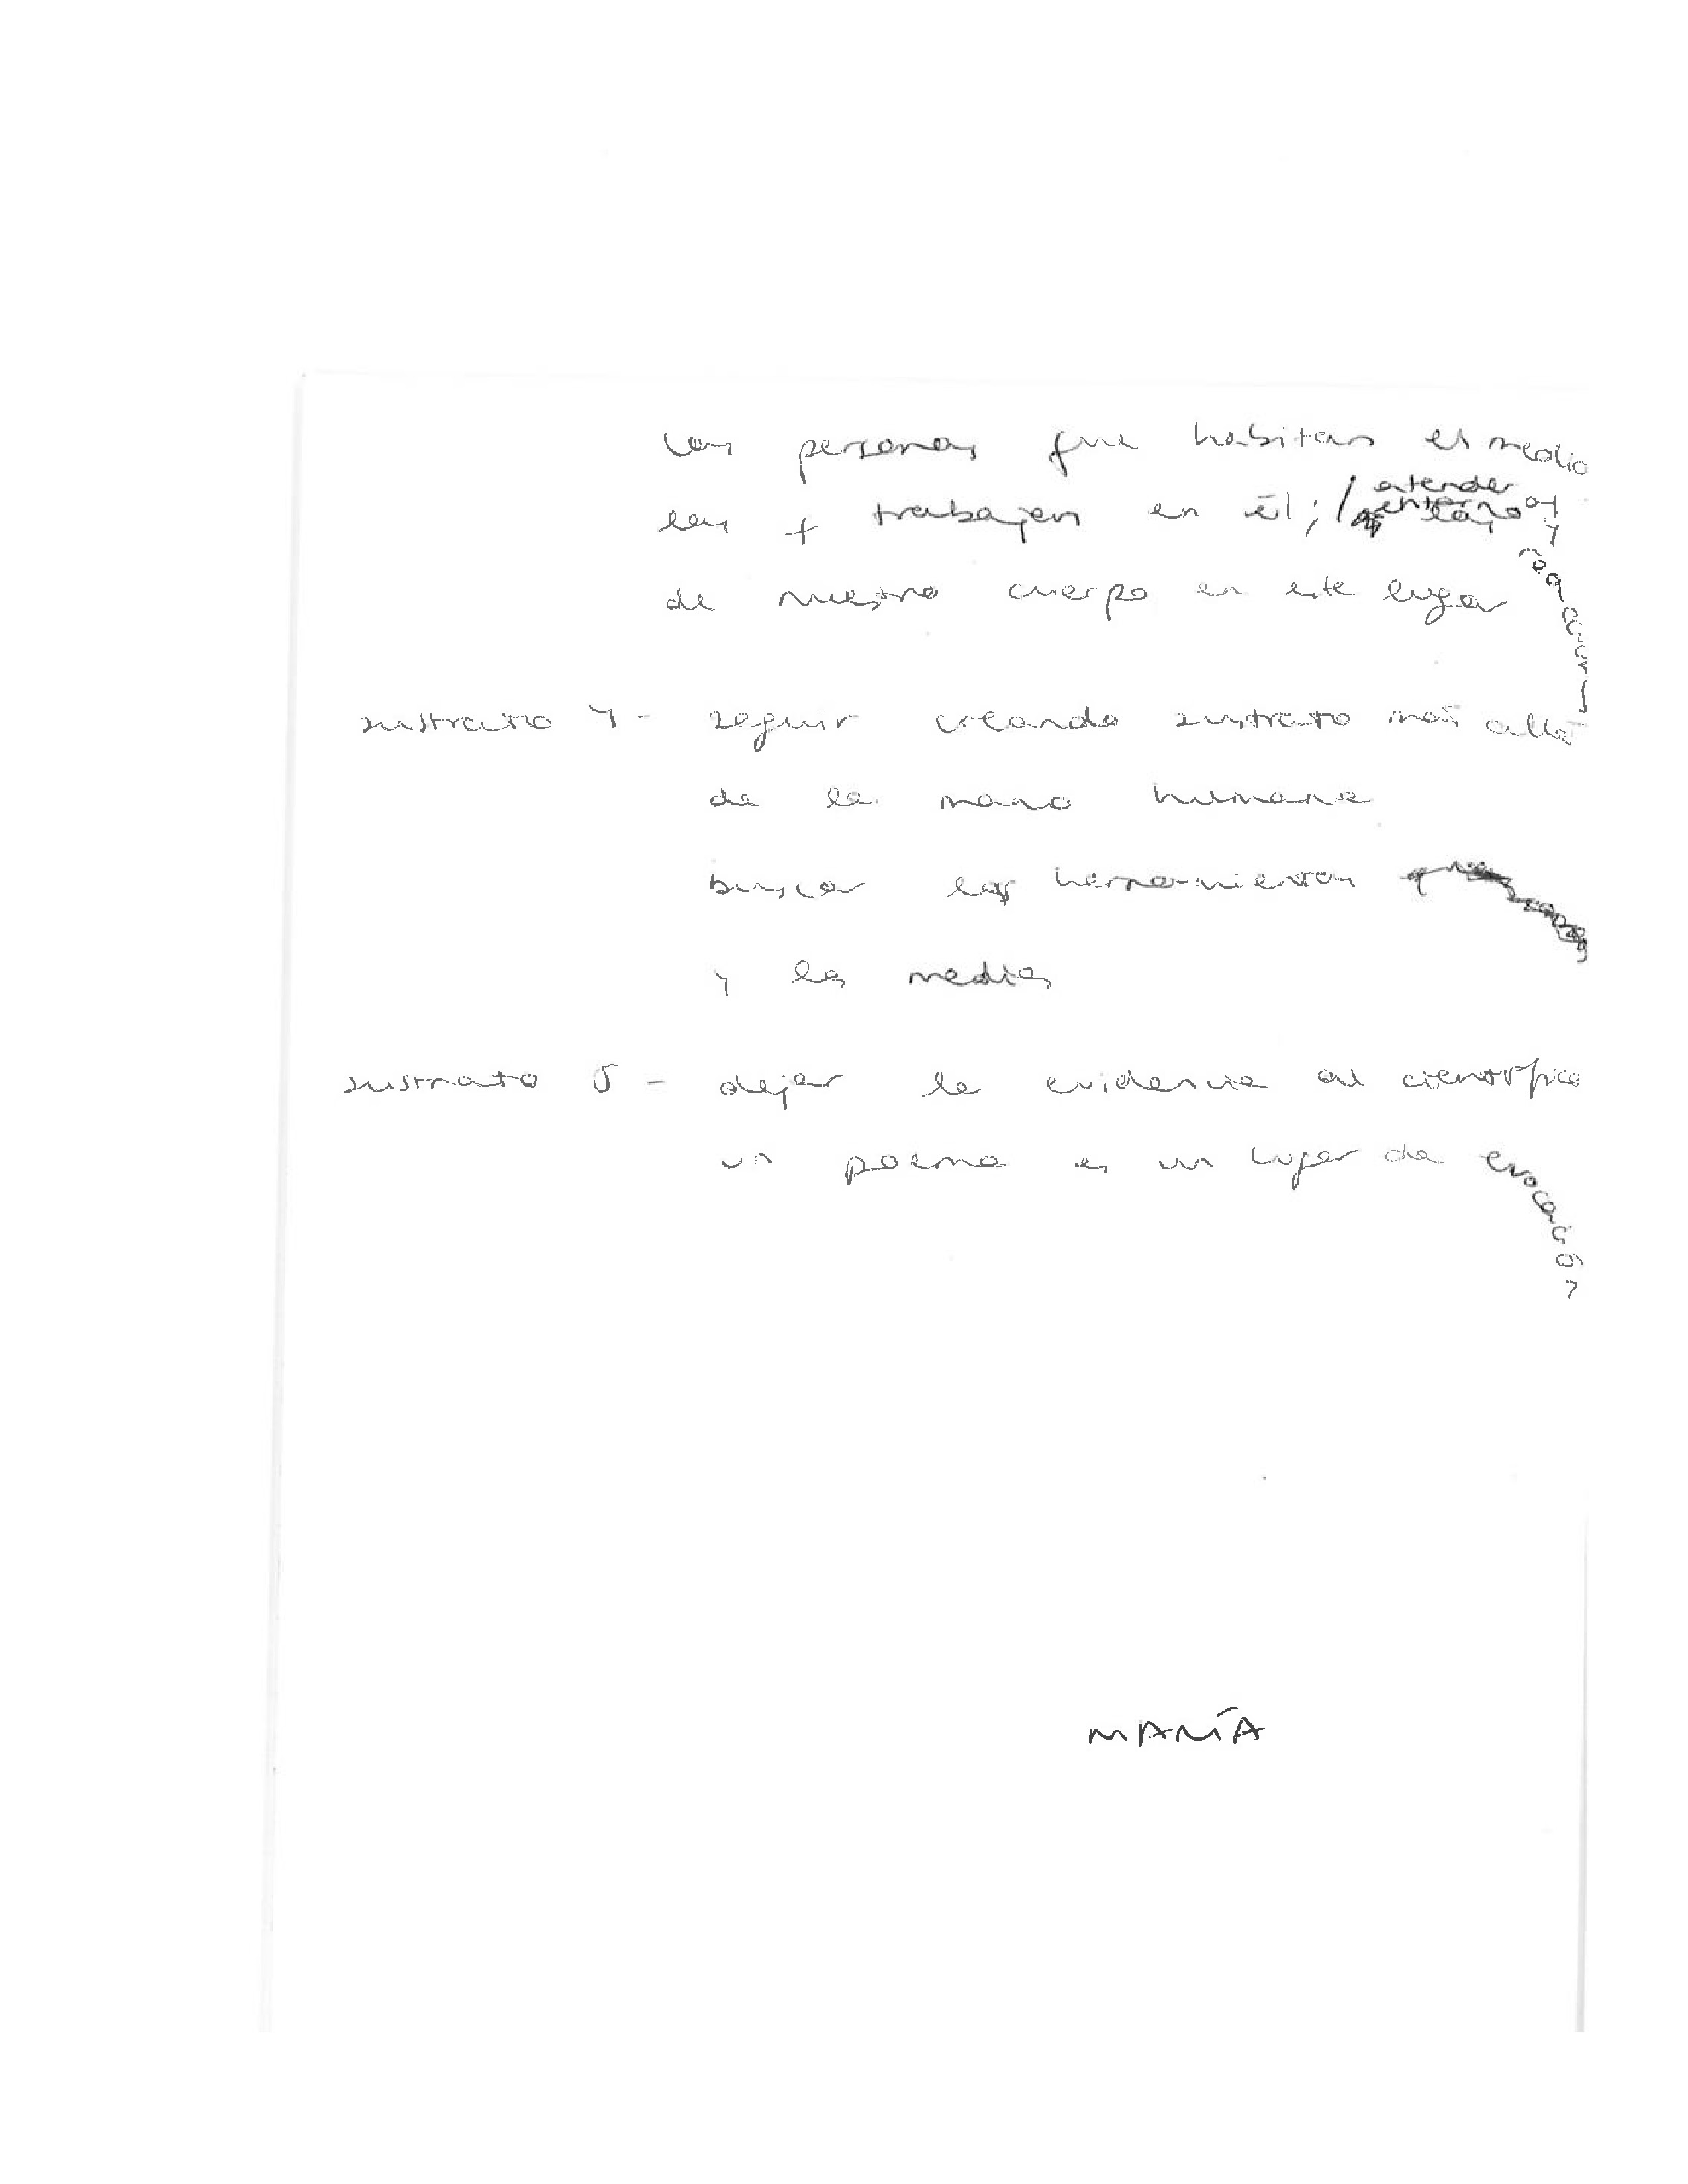 las personas que habitan el medio
las + trabajan en él; / atender
de nuestro cuerpo en este lugar
sustrato 4 - seguir creando sustrato más allá
de la mano humana
buscar las herramientas
y los medios
sustrato 5 - dejar la evidencia al científico
un poema es un lugar de evocación
MARÍA